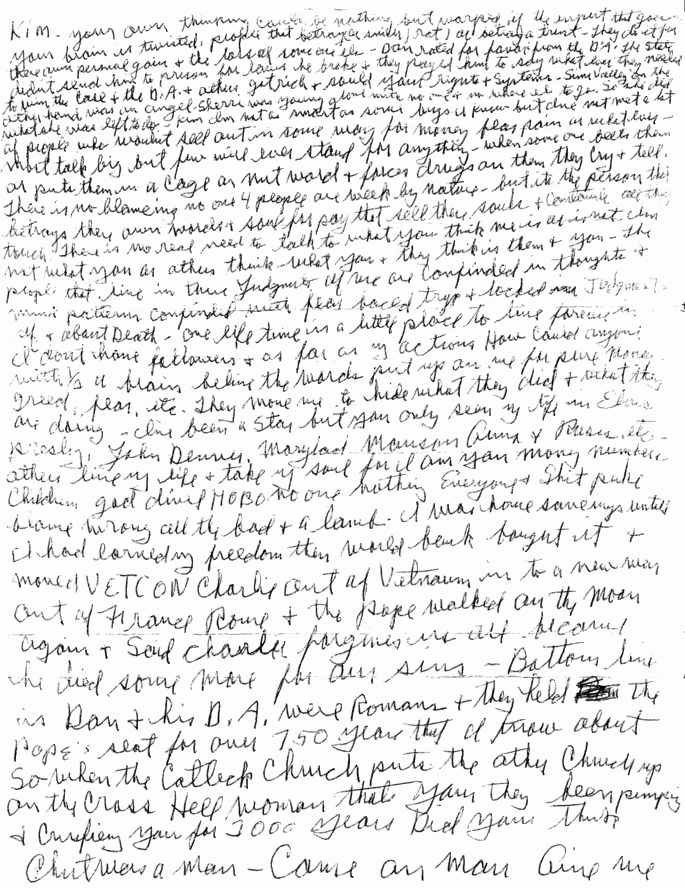 Kim - your own thinking could be nothing but warped if the expert that goes in
your brain is twisted, people that betrayes snich / rat / as betray a trust - They do it for
there own personal gain & the loss of some one els - Dan rated for favors from the D.A. The State
didn't send him to prison for laws he broke & they played him to say what ever they needed
to win the case & the D.A. & athers got rich & sould your rights & Systems - Simi Valley on the
ather hand was an angel Sherri was young alone with no one & no where els to go. So she did
what she was left to do. I'm not as smart as some guys is but I've not met a lot
of people who wouldn't sell out in some way for money fear pain or what ever -
most talk big but few will ever stand for anything - when some one beets them
or puts them in a cage or nut word & forces drugs on them they cry & tell.
There is no blameing no one 4 people are week by nature - but its the person that
betrays they own words & soul for pay that sell they souls & all they
touch. There is no real need to talk to what you think me is as is not I'm
not what you as athers think - what you & they think is them & you - The
people that live in there Judgments of me are confinded in thoughts &
patterns confinded with fear baced tryp & locked Judgment
& about Death - one life time is a little place to live forever in
I don't have followers & as far as my actions How could anyone
with ½ a brain belive the words put up on me for pure money
greed, fear, etc. They move me to hide what they did & what they
are doing - I've been a Star but you only seen my life in Elvis
Presley, John Denver, Maryland Manson Guns & Roses etc -
athers live my life & take my soul for I am you money numbers
Children god divel HOBO no one nothing Everyone & Shit puke
blame wrong all the bad & a lamb. I was home save mys until
I had earned my freedom then world bank bought it &
moved VETCON Charlie out of Vietnaum in to a new war
out of France Rome & the pope walked on the Moon
again & Said Charlie forgives us all because
he died some more for our sins - Bottom line
is Dan & his D.A. were Romans & they held the
Pope's seat for over 750 years that I know about
So when the Catleck Church puts the ather Church up
on the Cross Hell woman that's your they been pumping
& Crusifieng you for 2000 years Did you think
was a man - Cause an man Give me